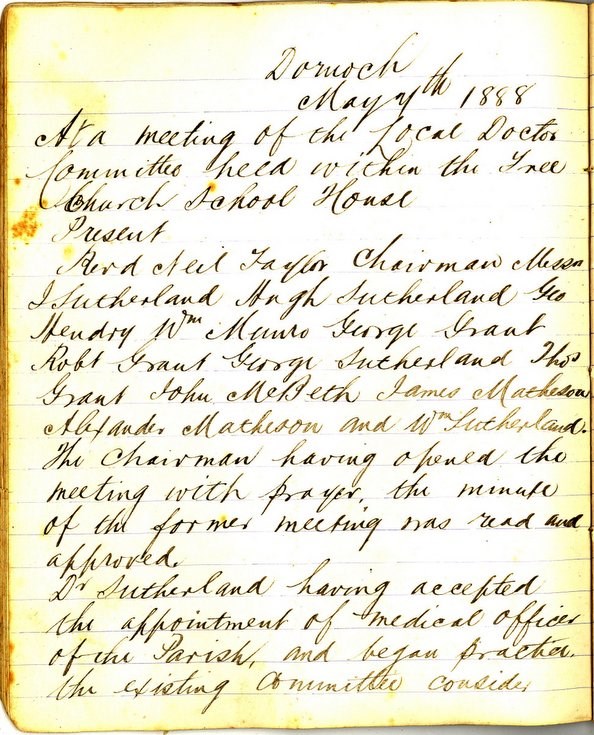 Dornoch
May 7th 1888
At a meeting of the Local Doctor
Committee held within the Free
Church School House
Present
Revd Neil Taylor Chairman Messrs
J Sutherland Hugh Sutherland Geo
Hendry Wm Munro George Grant
Robt Grant George Sutherland Thos
Grant John McBeth James Matheson
Alexander Matheson and Wm Sutherland.
The Chairman having opened the
meeting with prayer, the minute
of the former meeting was read and
approved.
Dr Sutherland having accepted
the appointment of medical officer
of the Parish, and began practice
the existing Committee consider